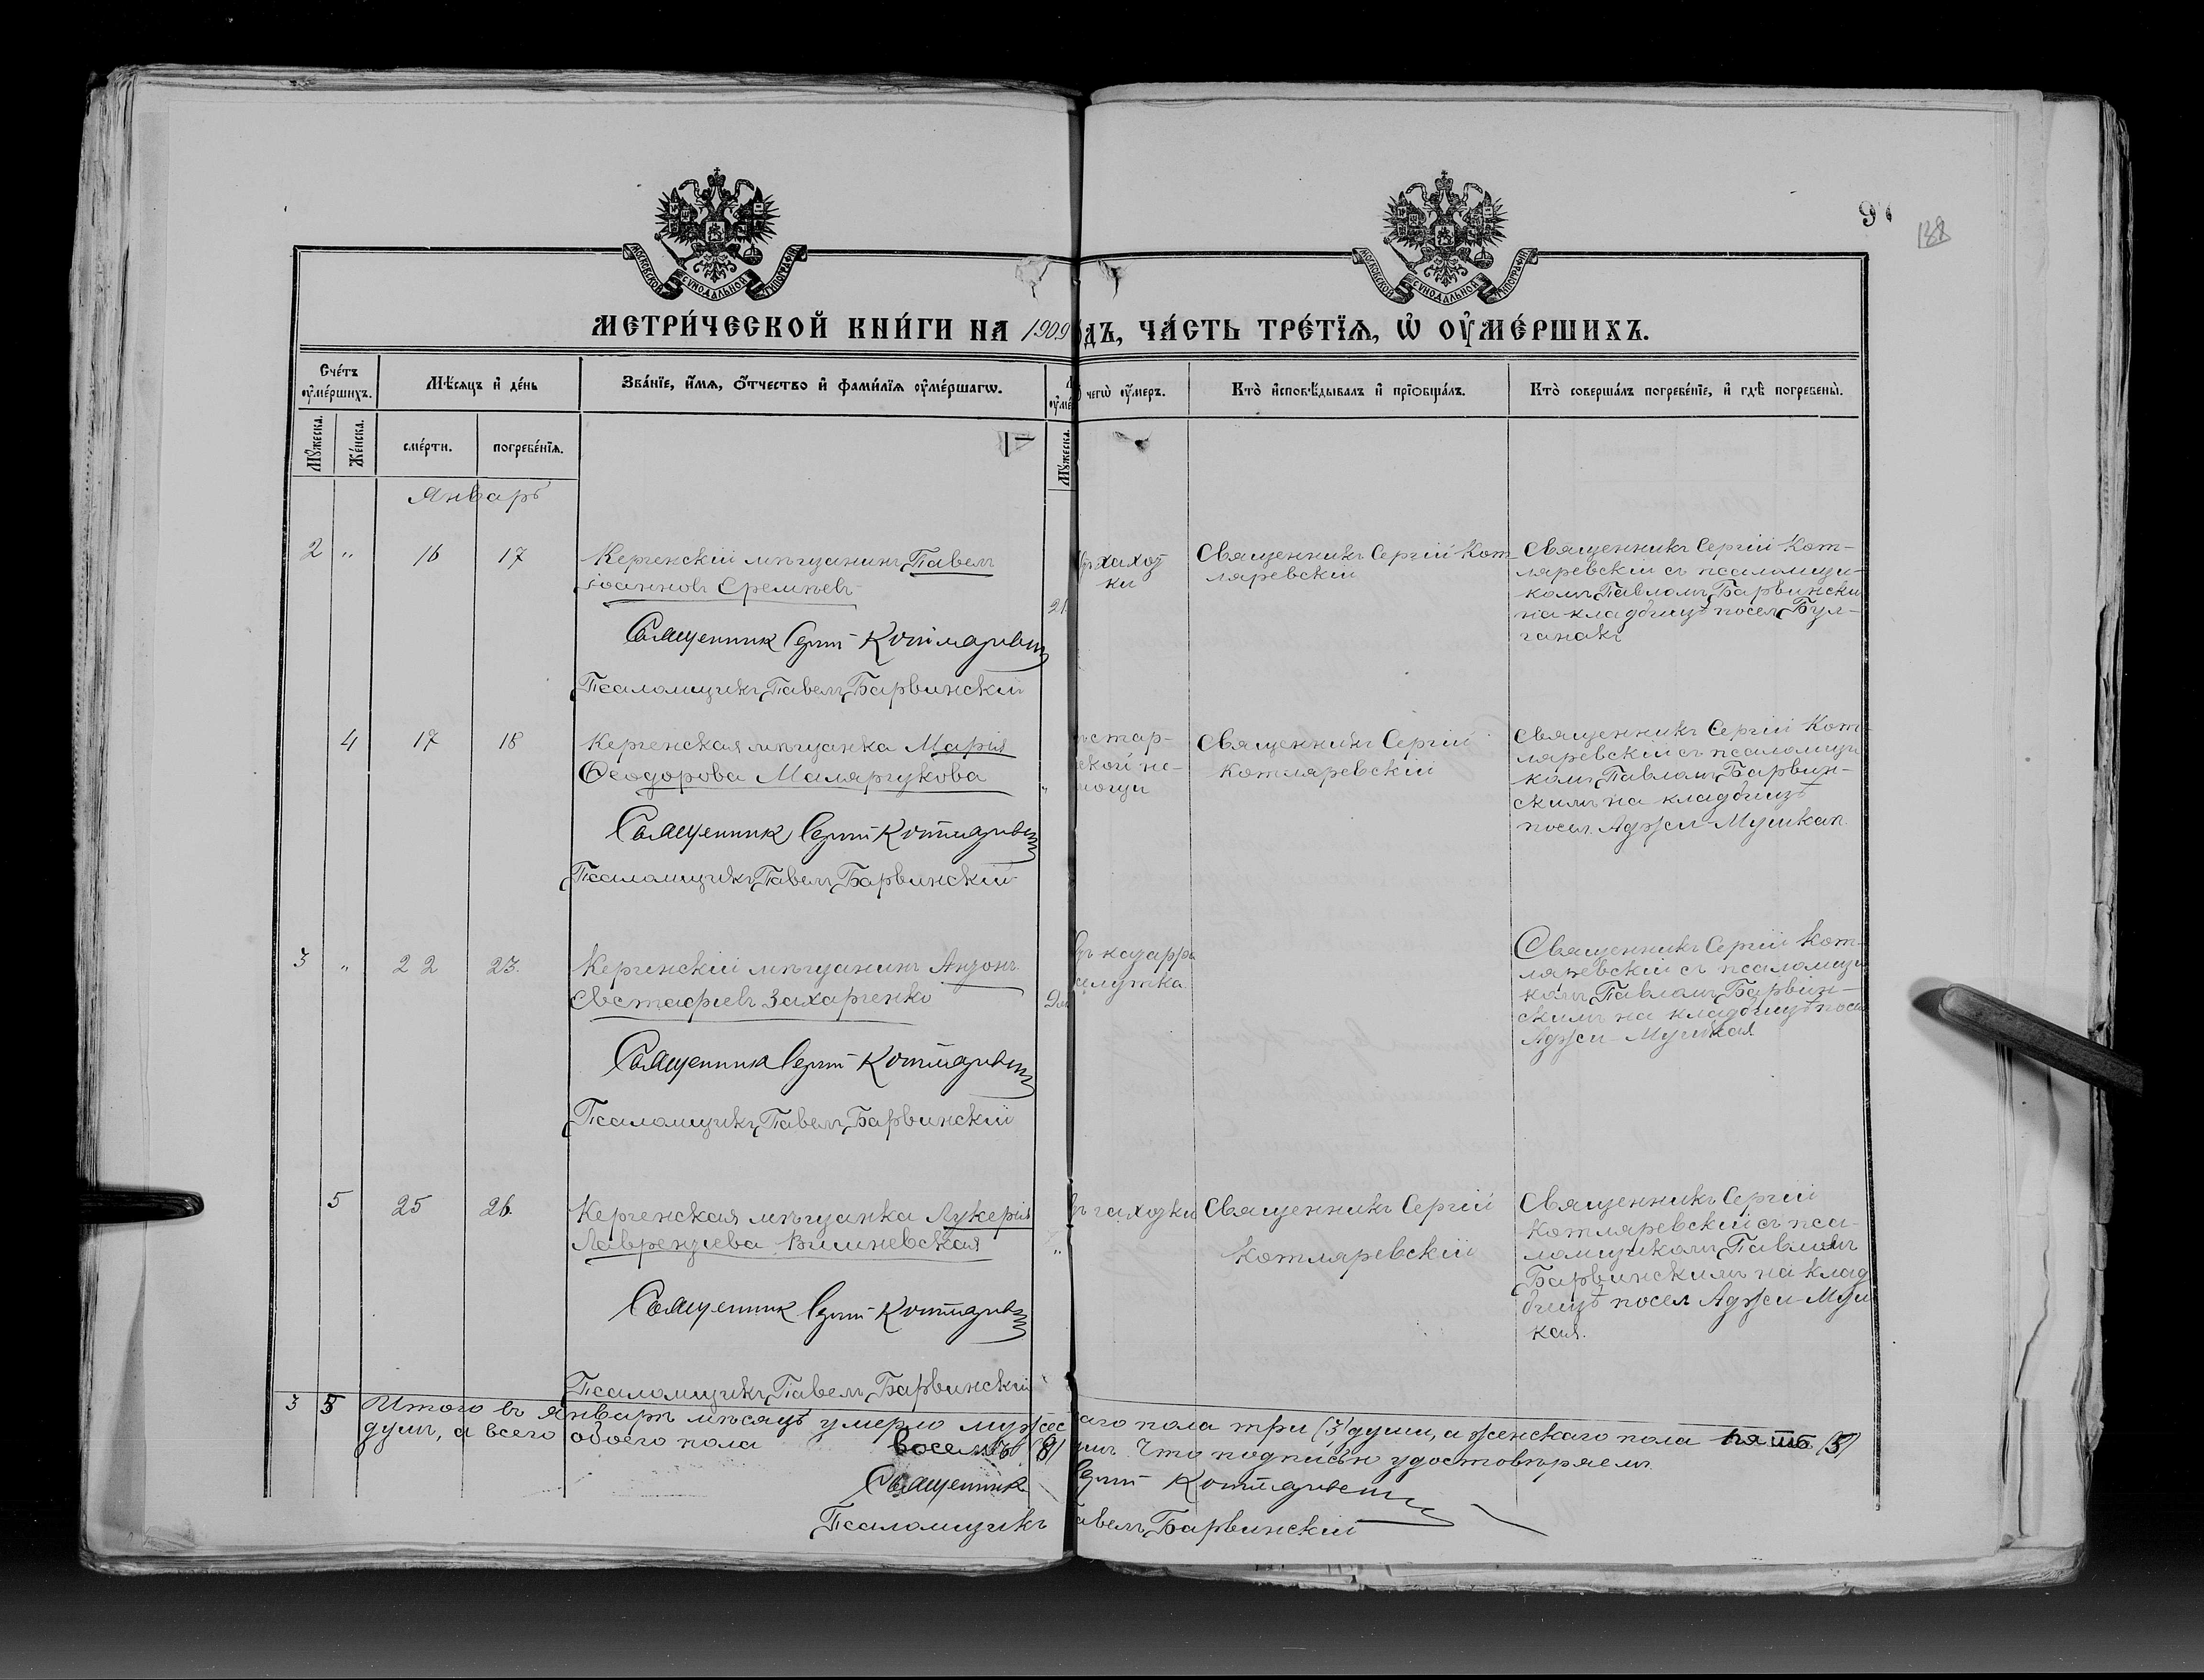 97
138
МОСКОВСКОЙ СѴНОДАЛЬНОЙ ТИПОГРАФІИ
МОСКОВСКОЙ СѴНОДАЛЬНОЙ ТИПОГРАФІИ
МЕТРИ́ЧЕСКОЙ КНИ́ГИ НА 1909
ДЪ, ЧА́СТЬ ТРЕ́ТЇѦ, Ѡ҆ ОУ҆МЕ́РШИХЪ.
Сче́тъ оу҆ме́ршихъ.
Мѣ́сяцъ и҆ де́нь
Зва́нїе, и҆́мѧ, ѻ҆́тчество и҆ фами́лїѧ оу҆ме́ршагѡ.
чегѡ̀ оу҆́меръ.
Кто̀ и҆сповѣ́дывалъ и҆ прїѡбща́лъ.
Кто̀ соверша́лъ погребе́нїе, и҆ гдѣ̀ погребены̀.
Мꙋ́жеска.
Же́нска.
сме́рти.
погребе́нїѧ.
Мꙋ́жеска.
Январь
2 „ 16 17
Керченскій мѣщанинъ Павелъ
Іоанновъ Еремѣевъ
21
Священникъ Сергій Котляревскій
Псаломщикъ Павелъ Барвинскій
чахот
ки
Священникъ Сергій Кот
ляревскій
Священникъ Сергій Кот-
ляревскій съ псаломщи-
комъ Павломъ Барвински
на кладбищѣ посел. Бул-
ганакъ
4 17 18
Керченская мѣщанка Марія
Ѳеодорова Малярчукова
„
Священникъ Сергій Котляревскій
Псаломщикъ Павелъ Барвинскій
стар-
ской не-
мощи
Священникъ Сергій
Котляревскій
Священникъ Сергій Кот
ляревскій съ псаломщи
комъ Павломъ Барвин-
скимъ на кладбищѣ
посел. Аджи-Мушкая
3 „ 22 23.
Керченскій мѣщанинъ Антонъ
Евстафіевъ Захарченко
Священникъ Сергій Котляревскій
Псаломщикъ Павелъ Барвинскій
катарра
желудка
Священникъ Сергій Кот-
ляревскій съ псаломщи
комъ Павломъ Барвин-
скимъ на кладбищѣ посел
Аджи-Мушкая
5 25 26.
Керченская мѣщанка Лукерія
Лаврентіева Вишневская
„
Священникъ Сергій Котляревскій
Псаломщикъ Павелъ Барвинскій
чахотки
Священникъ Сергій
Котляревскій
Священникъ Сергій
Котляревскій съ пса-
ломщикомъ Павломъ
Барвинскимъ на клад
бищѣ посел Аджи-Муш
кая.
3 5 Итого въ Январѣ мѣсяцѣ умерло мужес
каго пола три (3) души, а женскаго пола пять (5)
душъ, а всего обоего пола восемь (8)
душъ. Что подписью удостовѣряемъ
Священникъ Сергій Котляревскій
Псаломщикъ Павелъ Барвинскій